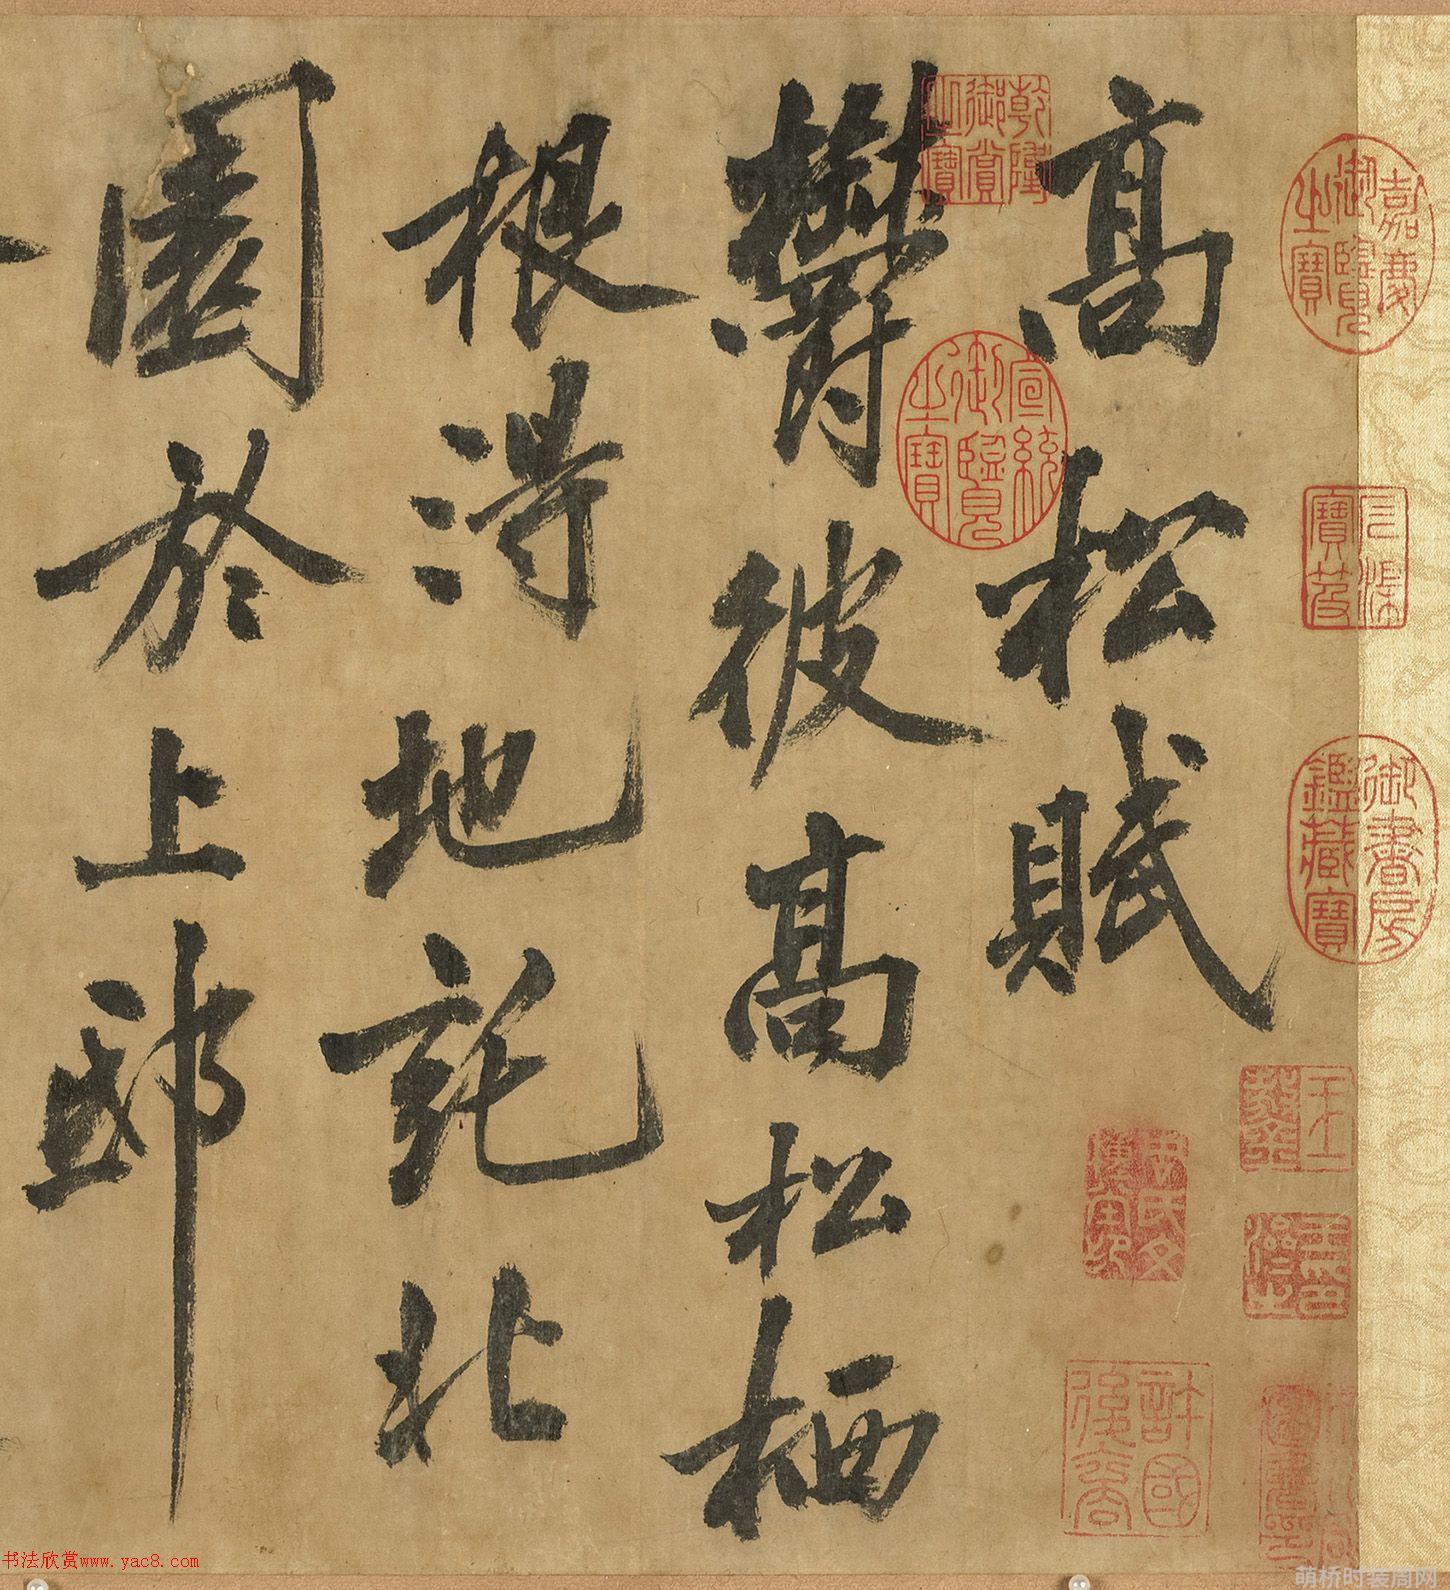 高松賦
欝彼高松栖
根得地託北
園於上邸
乾隆御賞之寶
宣統御覽之寶
嘉慶御覽之寶
御書房鑑藏寶
許國後裔
书法欣赏www.yac8.com
萌桥时装周网